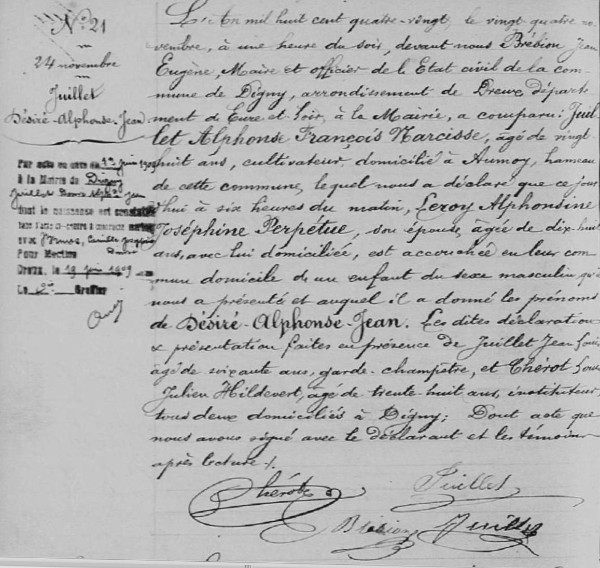 N° 21
24 novembre
Juillet
Désiré-Alphonse-Jean
Par acte en date du 1er Juin
à la Mairie de Digny
Juillet Désiré Alph. Jean
dont la naissance est constatée
dans l'acte ci-contre a contracté mariage
avec
Pour Mention
Dreux, le 19 Juin 1909
Le Greffier
L'An mil huit cent quatre-vingt, le vingt quatre no-
vembre, à une heure du soir, devant nous Brébion Jean
Eugène, Maire et officier de l'Etat civil de la com-
mune de Digny, arrondissement de Dreux, départe-
ment de Eure et Loir, à la Mairie, a comparu: Juil-
let Alphonse François Narcisse, âgé de vingt
huit ans, cultivateur, domicilié à Aunoy, hameau
de cette commune, lequel nous a déclaré que ce jour
d'hui à six heures du matin, Leroy Alphonsine
Joséphine Perpétue, son épouse, âgée de dix-huit
ans, avec lui domiciliée, est accouchée en leur com-
mun domicile d'un enfant du sexe masculin qu'il
nous a présenté et auquel il a donné les prénoms
de Désiré-Alphonse-Jean. Les dites déclaration
& présentation faites en présence de Juillet Jean Louis
âgé de soixante ans, garde-champêtre, et Thérot Louis
Julien Hildevert, âgé de trente-huit ans, instituteur,
tous deux domiciliés à Digny; Dont acte que
nous avons signé avec le déclarant et les témoins
après lecture /.
Thérot Juillet
Brébion Juillet